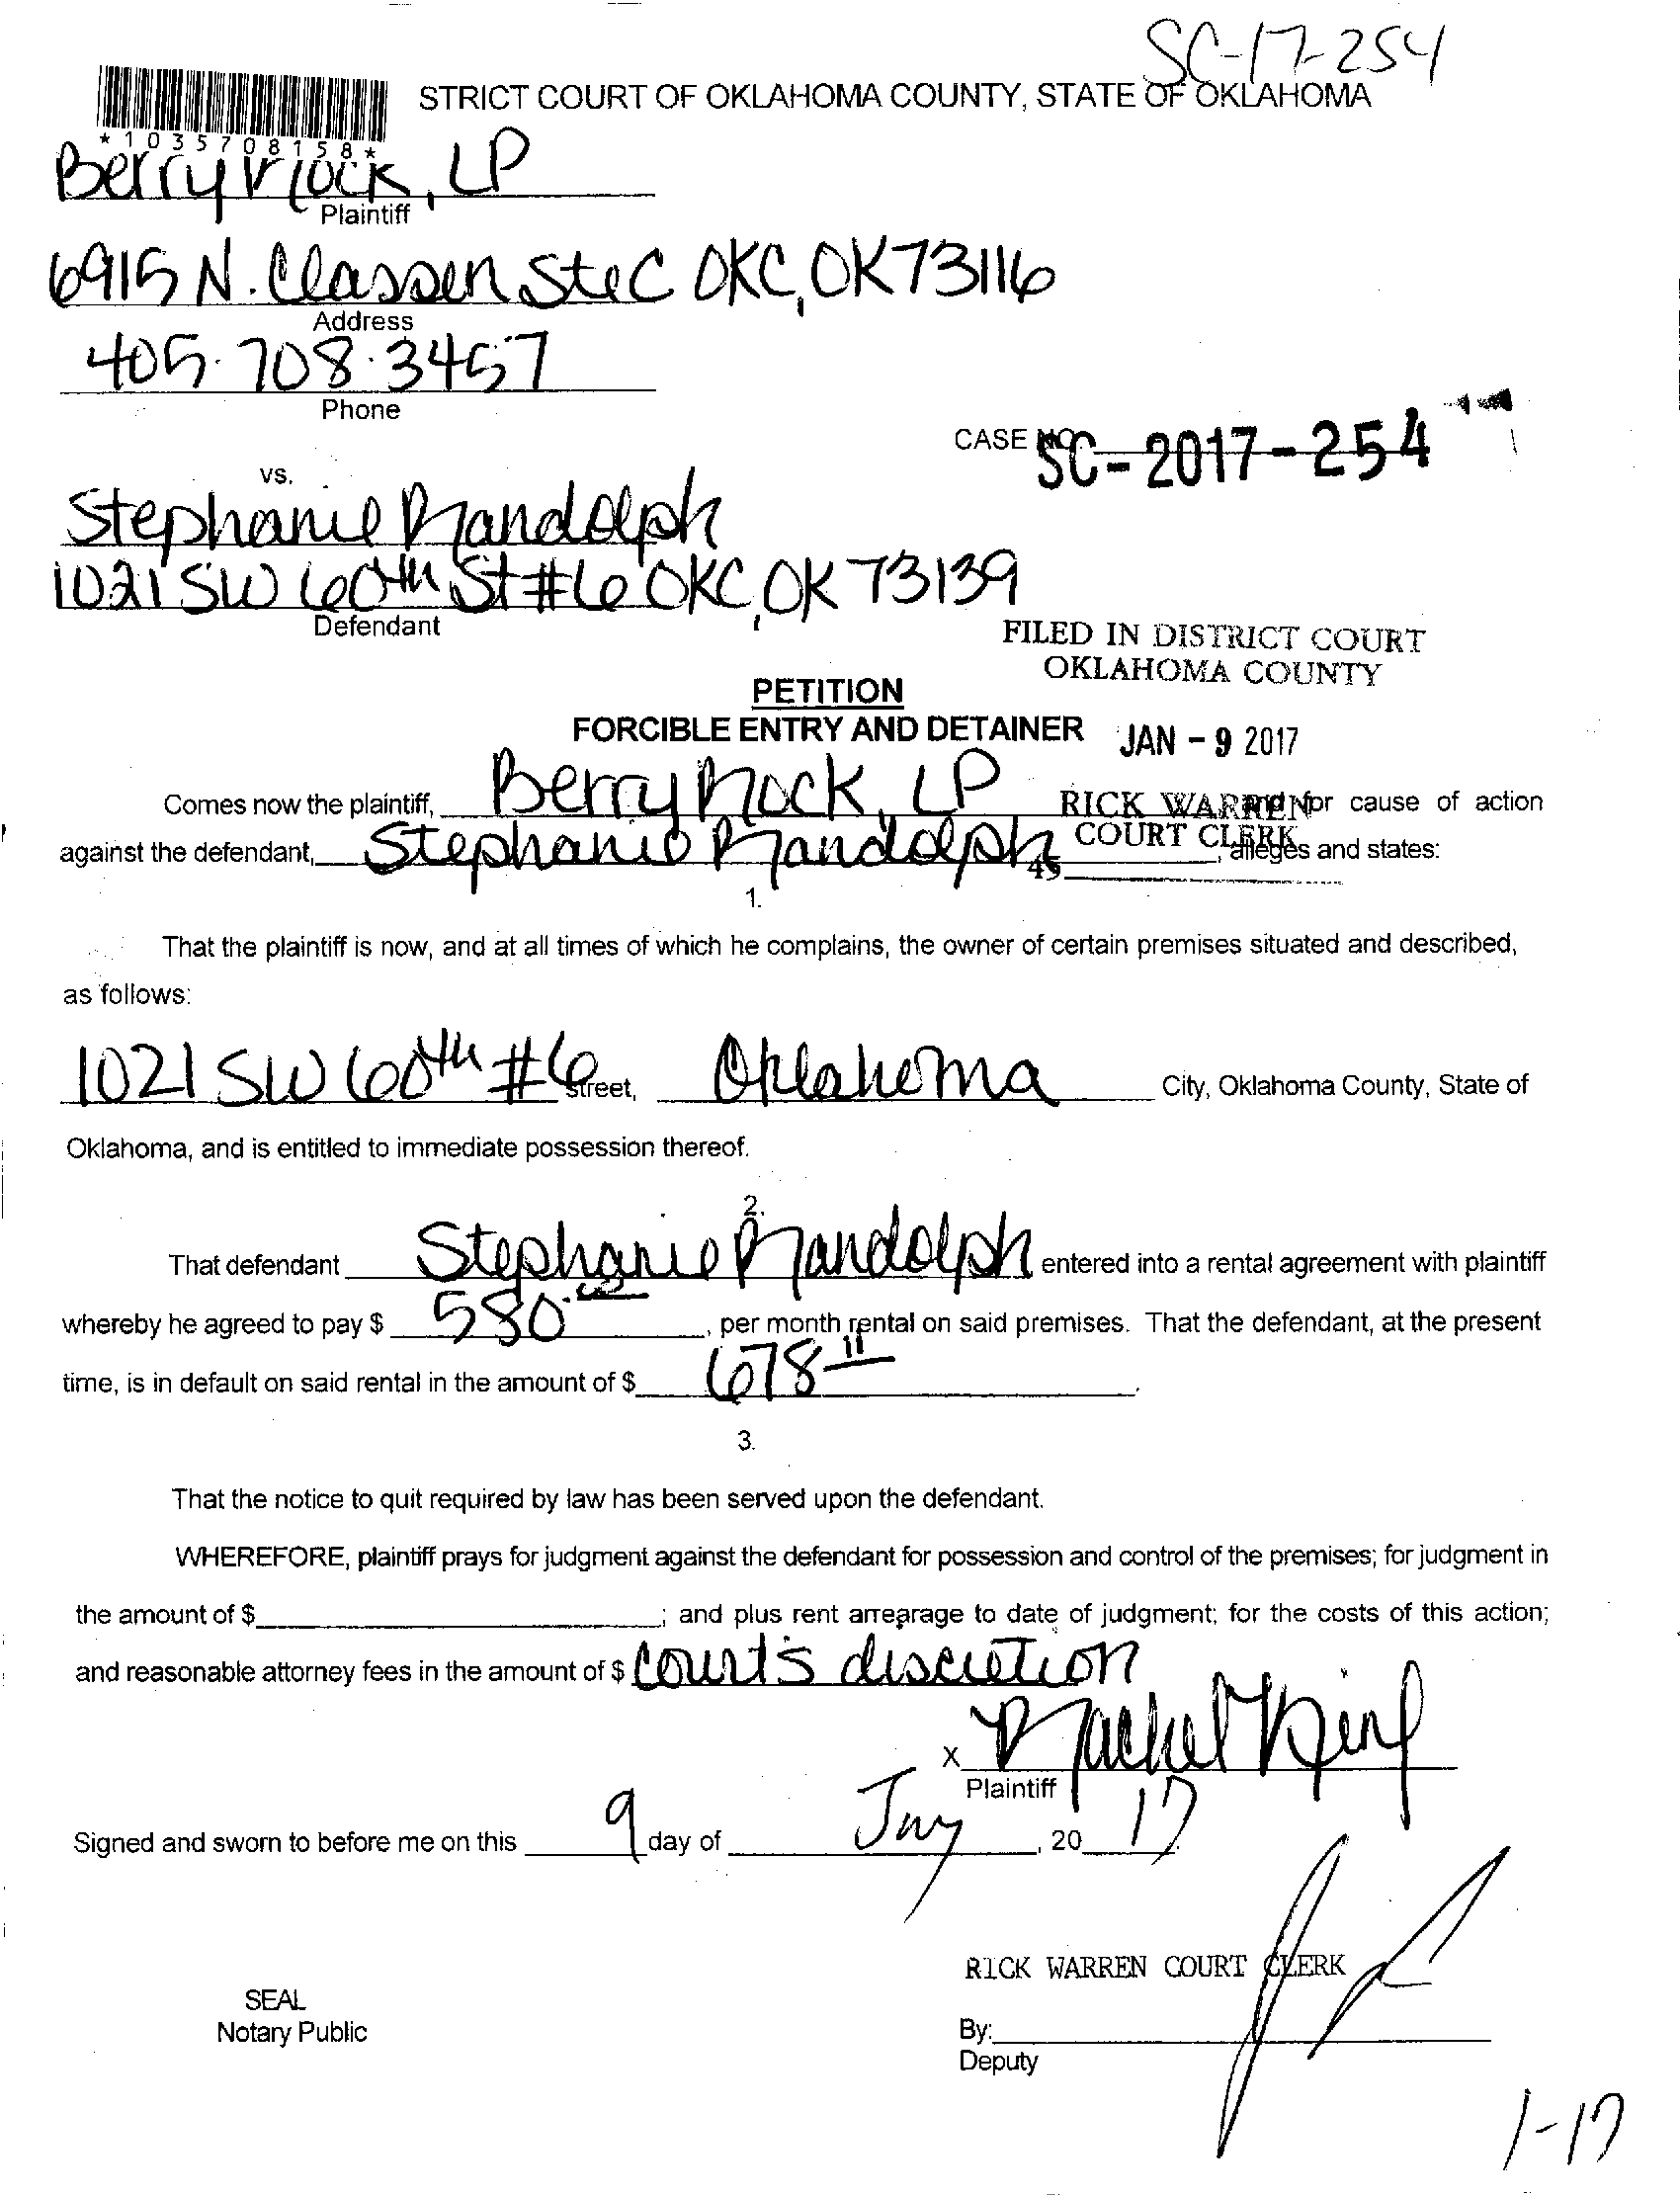 SC-17-254
STRICT COURT OF OKLAHOMA COUNTY, STATE OF OKLAHOMA
*1035708158*
Berry Rock, LP
Plaintiff
6915 N. Classen Ste C OKC, OK 73116
Address
405.708.3457
Phone
CASE NO. SC-2017-254
vs.
Stephanie Randolph
1021 SW 60th St #6 OKC, OK 73139
Defendant
FILED IN DISTRICT COURT
OKLAHOMA COUNTY
PETITION
FORCIBLE ENTRY AND DETAINER
JAN - 9 2017
Comes now the plaintiff, Berry Rock, LP and for cause of action
RICK WARREN
against the defendant, Stephanie Randolph, alleges and states:
COURT CLERK
45
1.
That the plaintiff is now, and at all times of which he complains, the owner of certain premises situated and described,
as follows:
1021 SW 60th #6 Street, Oklahoma City, Oklahoma County, State of
Oklahoma, and is entitled to immediate possession thereof.
2.
That defendant Stephanie Randolph entered into a rental agreement with plaintiff
whereby he agreed to pay $ 580.00, per month rental on said premises. That the defendant, at the present
time, is in default on said rental in the amount of $ 678 11.
3.
That the notice to quit required by law has been served upon the defendant.
WHEREFORE, plaintiff prays for judgment against the defendant for possession and control of the premises; for judgment in
the amount of $ ; and plus rent arrearage to date of judgment; for the costs of this action;
and reasonable attorney fees in the amount of $ court's discretion
x Rachel King
Plaintiff
Signed and sworn to before me on this 9 day of Jny, 20 17
RICK WARREN COURT CLERK
SEAL
Notary Public
By:
Deputy
1-17